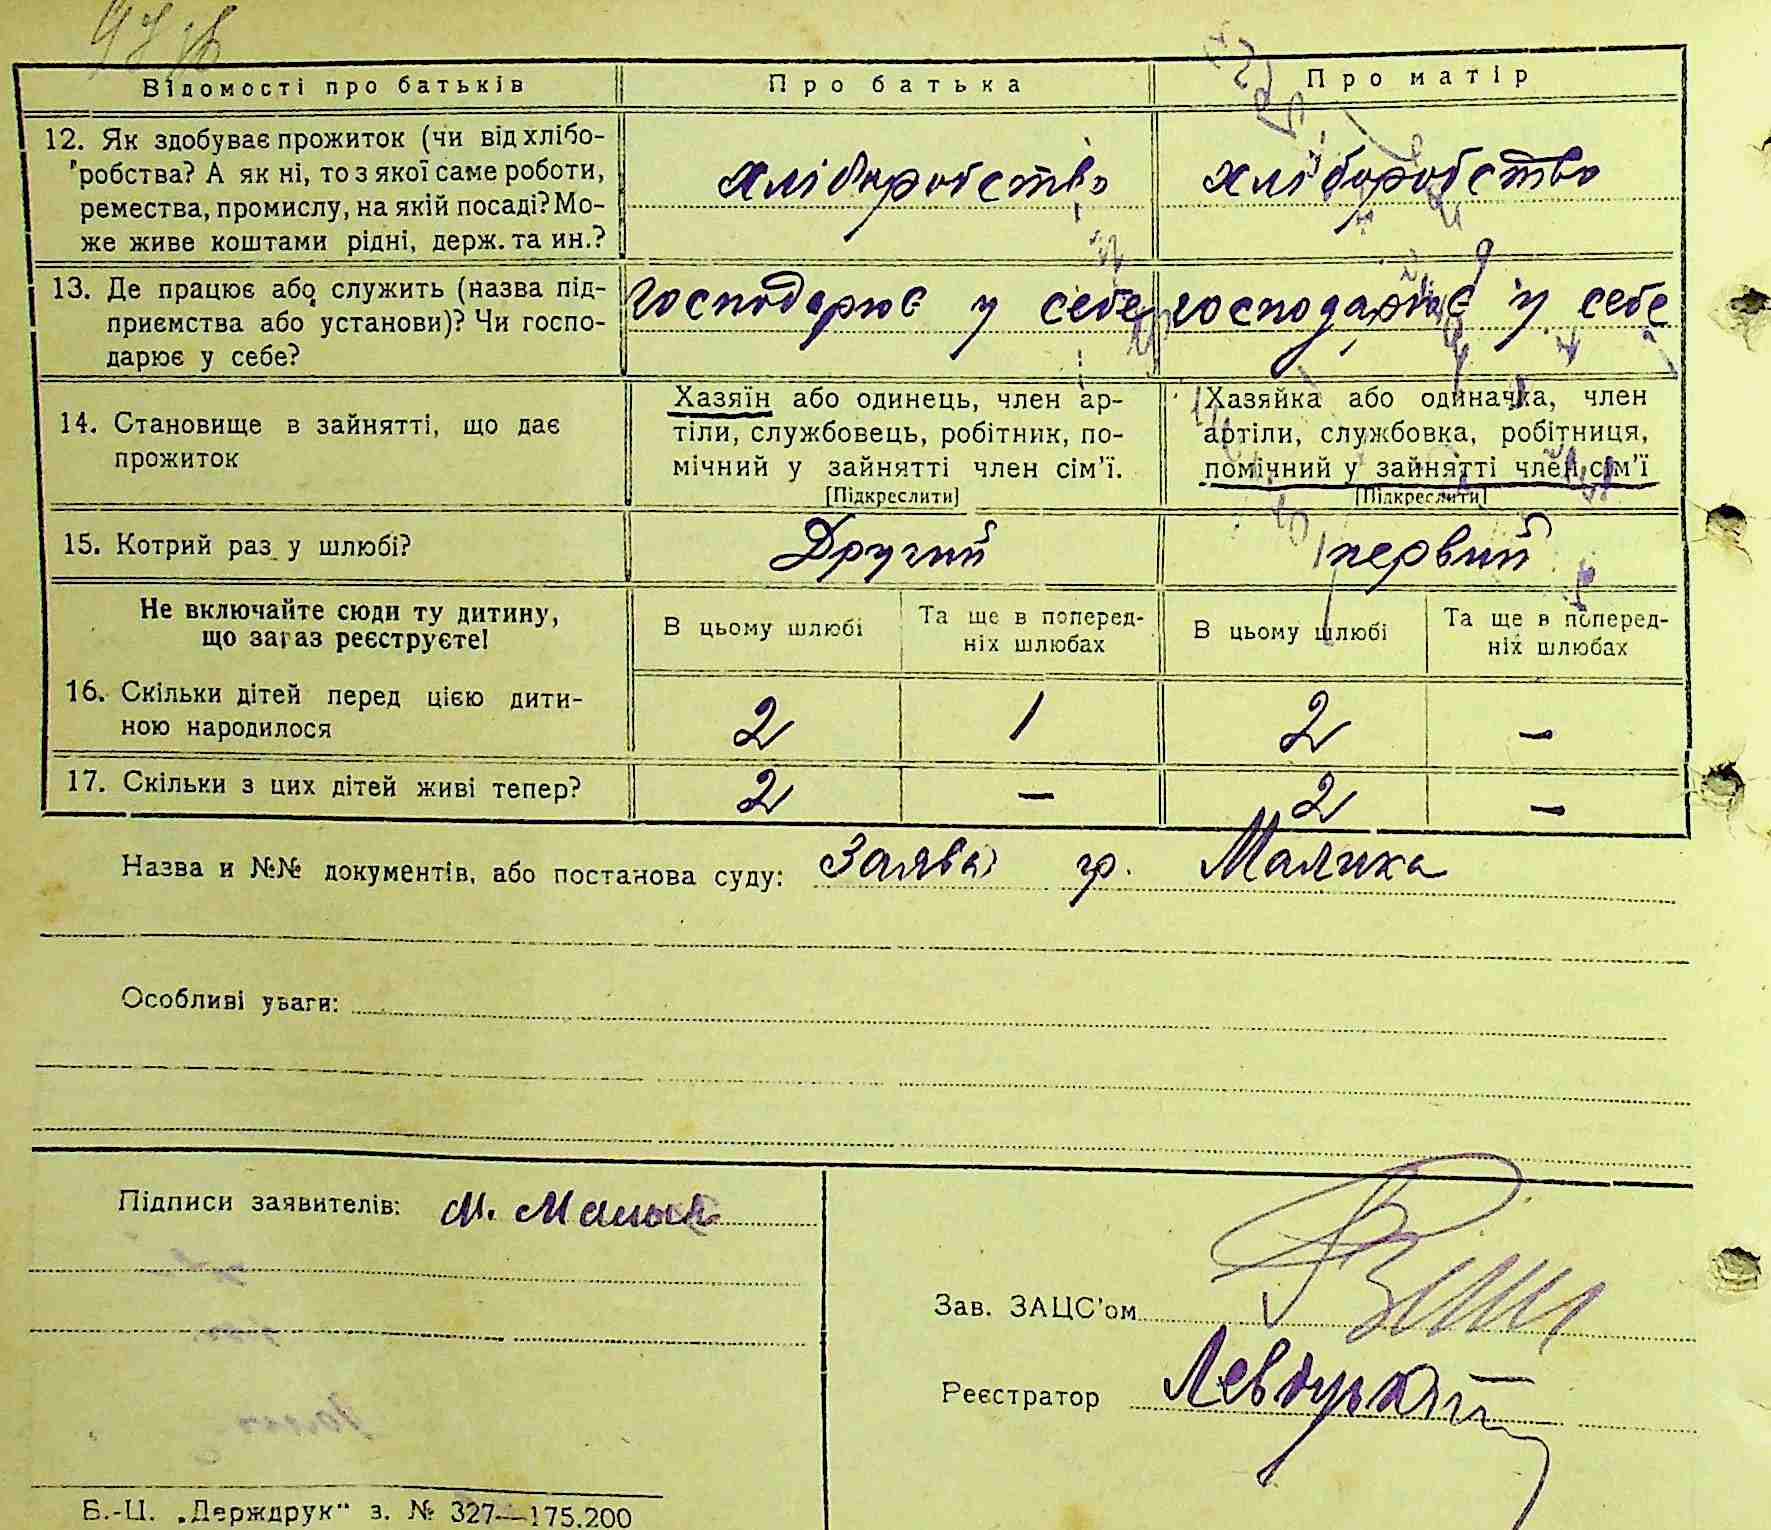 Відомості про батьків
Про батька
Про матір
12. Як здобуває прожиток (чи від хлібо-
робства? А як ні, то з якої саме роботи,
ремества, промислу, на якій посаді? Мо-
же живе коштами рідні, держ. та ин.?
хліборобство
хліборобство
13. Де працює або служить (назва під-
приємства або установи)? Чи госпо-
дарює у себе?
господарює у себе
господарює у себе
14. Становище в зайнятті, що дає
прожиток
Хазяїн або одинець, член ар-
тіли, службовець, робітник, по-
мічний у зайнятті член сім'ї.
[Підкреслити]
Хазяйка або одиначка, член
артіли, службовка, робітниця,
помічний у зайнятті член сім'ї
[Підкреслити]
15. Котрий раз у шлюбі?
Другий
первий
Не включайте сюди ту дитину,
що зараз реєструєте!
В цьому шлюбі
Та ще в поперед-
ніх шлюбах
В цьому шлюбі
Та ще в поперед-
ніх шлюбах
16. Скільки дітей перед цією дити-
ною народилося
2
1
2
–
17. Скільки з цих дітей живі тепер?
2
–
2
–
Назва и №№ документів, або постанова суду: Заява гр. Малика
Особливі уваги:
Підписи заявителів: М.
Зав. ЗАЦС'ом
Реєстратор
Б.-Ц. „Держдрук" з. № 327—175.200